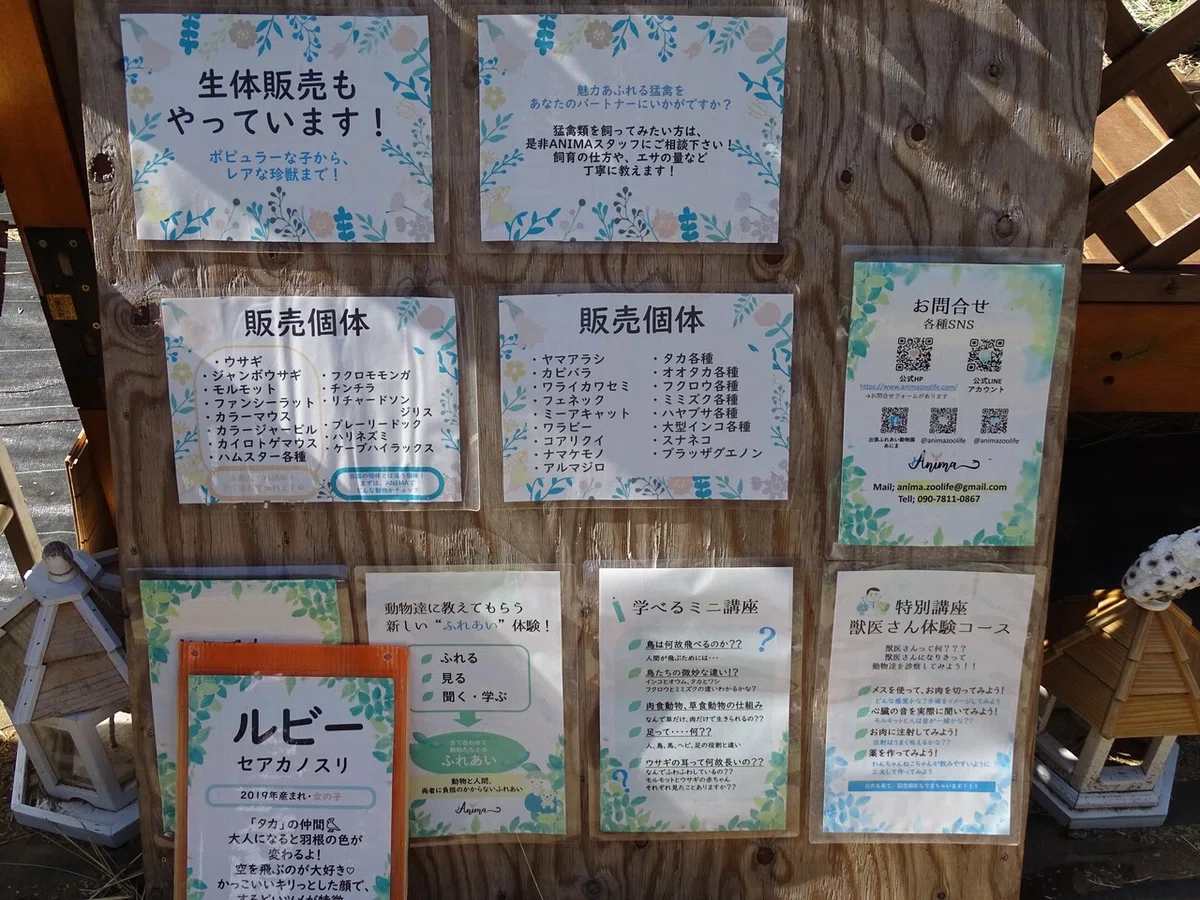 生体販売も
やっています！
ポピュラーな子から、
レアな珍獣まで！
魅力あふれる猛禽を
あなたのパートナーにいかがですか？
猛禽類を飼ってみたい方は、
是非ANIMAスタッフにご相談下さい！
飼育の仕方や、エサの量など
丁寧に教えます！
販売個体
・ウサギ
・ジャンボウサギ
・モルモット
・ファンシーラット
・カラーマウス
・カラージャービル
・カイロトゲマウス
・ハムスター各種
・フクロモモンガ
・チンチラ
・リチャードソン
ジリス
・プレーリードック
・ハリネズミ
・ケープハイラックス
まずは、ANIMAで
どんな動物かチェック
販売個体
・ヤマアラシ
・カピバラ
・ワライカワセミ
・フェネック
・ミーアキャット
・ワラビー
・コアリクイ
・ナマケモノ
・アルマジロ
・タカ各種
・オオタカ各種
・フクロウ各種
・ミミズク各種
・ハヤブサ各種
・大型インコ各種
・スナネコ
・ブラッザグエノン
お問合せ
各種SNS
公式HP
https://www.animazoolife.com/
→お問合せフォームがあります
公式LINE
アカウント
出張ふれあい動物園
あにま
@animazoolife
@animazoolife
Anima
Mail; anima.zoolife@gmail.com
Tell; 090-7811-0867
動物達に教えてもらう
新しい“ふれあい”体験！
ふれる
見る
聞く・学ぶ
全て合わせて
動物たちとの
ふれあい
動物と人間、
両者に負担のかからないふれあい
Anima
学べるミニ講座
鳥は何故飛べるのか？？
人間が飛ぶためには・・・
鳥たちの微妙な違い！？
インコとオウム、タカとワシ
フクロウとミミズクの違いわかるかな？
肉食動物、草食動物の仕組み
なんで草だけ、肉だけで生きられるの？？
足って・・・・何？？
人、鳥、馬、ヘビ、足の役割と違い
ウサギの耳って何故長いの？？
なんでふわふわしているの？？
モルモットとウサギの赤ちゃん
それぞれ見たことありますか？？
特別講座
獣医さん体験コース
獣医さんって何？？？
獣医さんになりきって
動物達を診察してみよう！！
メスを使って、お肉を切ってみよう！
どんな感覚かな？手術をイメージしてみよう
心臓の音を実際に聞いてみよう！
モルモットと人は音が一緒かな？？
お肉に注射してみよう！
注射はうまく扱えるかな？？
薬を作ってみよう！
わんちゃんねこちゃんが飲みやすいように
工夫して作ってみよう
ルビー
セアカノスリ
2019年産まれ・女の子
「タカ」の仲間
大人になると羽根の色が
変わるよ！
空を飛ぶのが大好き♡
かっこいいキリっとした顔で、
するどいツメが特徴